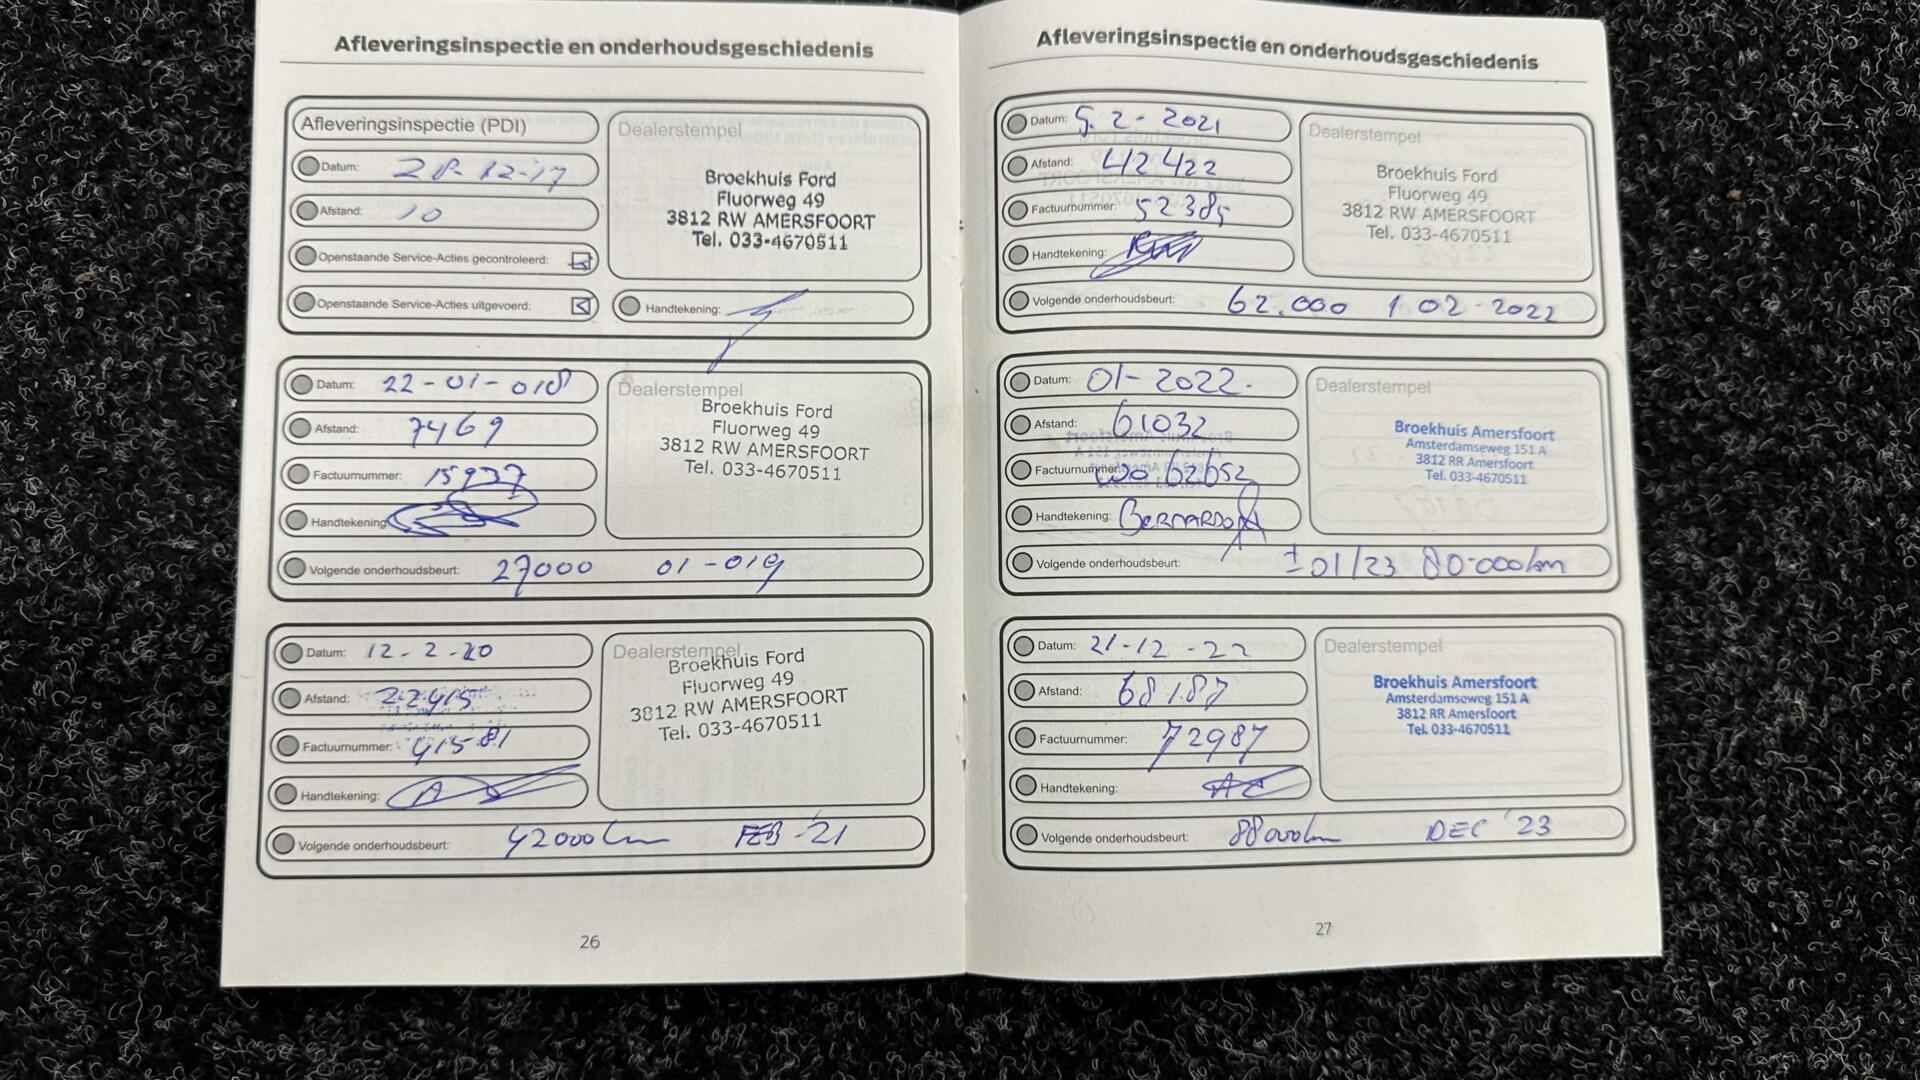 Afleveringsinspectie en onderhoudsgeschiedenis
Afleveringsinspectie (PDI)
Datum: 28-12-17
Afstand: 10
Openstaande Service-Acties gecontroleerd:
Openstaande Service-Acties uitgevoerd:
Dealerstempel
Broekhuis Ford
Fluorweg 49
3812 RW AMERSFOORT
Tel. 033-4670511
Handtekening:
Datum: 22-01-018
Afstand: 7469
Factuurnummer: 15937
Handtekening
Dealerstempel
Broekhuis Ford
Fluorweg 49
3812 RW AMERSFOORT
Tel. 033-4670511
Volgende onderhoudsbeurt: 27000 01-019
Datum: 12-2-20
Afstand: 22915
Factuurnummer: 41581
Handtekening:
Dealerstempel
Broekhuis Ford
Fluorweg 49
3812 RW AMERSFOORT
Tel. 033-4670511
Volgende onderhoudsbeurt: 42000km FEB '21
26
Afleveringsinspectie en onderhoudsgeschiedenis
Datum: 5.2-2021
Afstand: 42422
Factuurnummer: 52385
Handtekening:
Dealerstempel
Broekhuis Ford
Fluorweg 49
3812 RW AMERSFOORT
Tel. 033-4670511
Volgende onderhoudsbeurt: 62.000 1 02-2022
Datum: 01-2022.
Afstand: 61032
Factuurnummer: 62652
Handtekening:
Dealerstempel
Broekhuis Amersfoort
Amsterdamseweg 151 A
3812 RR Amersfoort
Tel. 033-4670511
Volgende onderhoudsbeurt: ± 01/23 80.000km
Datum: 21-12-22
Afstand: 68187
Factuurnummer: 72987
Handtekening:
Dealerstempel
Broekhuis Amersfoort
Amsterdamseweg 151 A
3812 RR Amersfoort
Tel. 033-4670511
Volgende onderhoudsbeurt: 88000km DEC '23
27